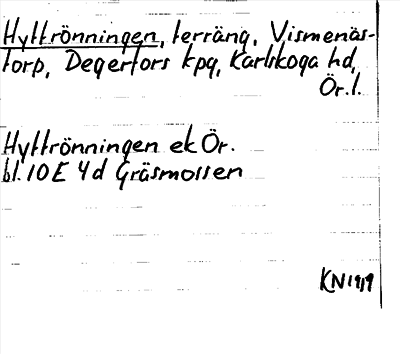 Hyttrönningen, terräng, Vismenäs-
torp, Degerfors kpg, Karlskoga hd,
Ör.l.
Hyttrönningen ek Ör.
bl. 10 E 4 d Gräsmossen
KN 1919